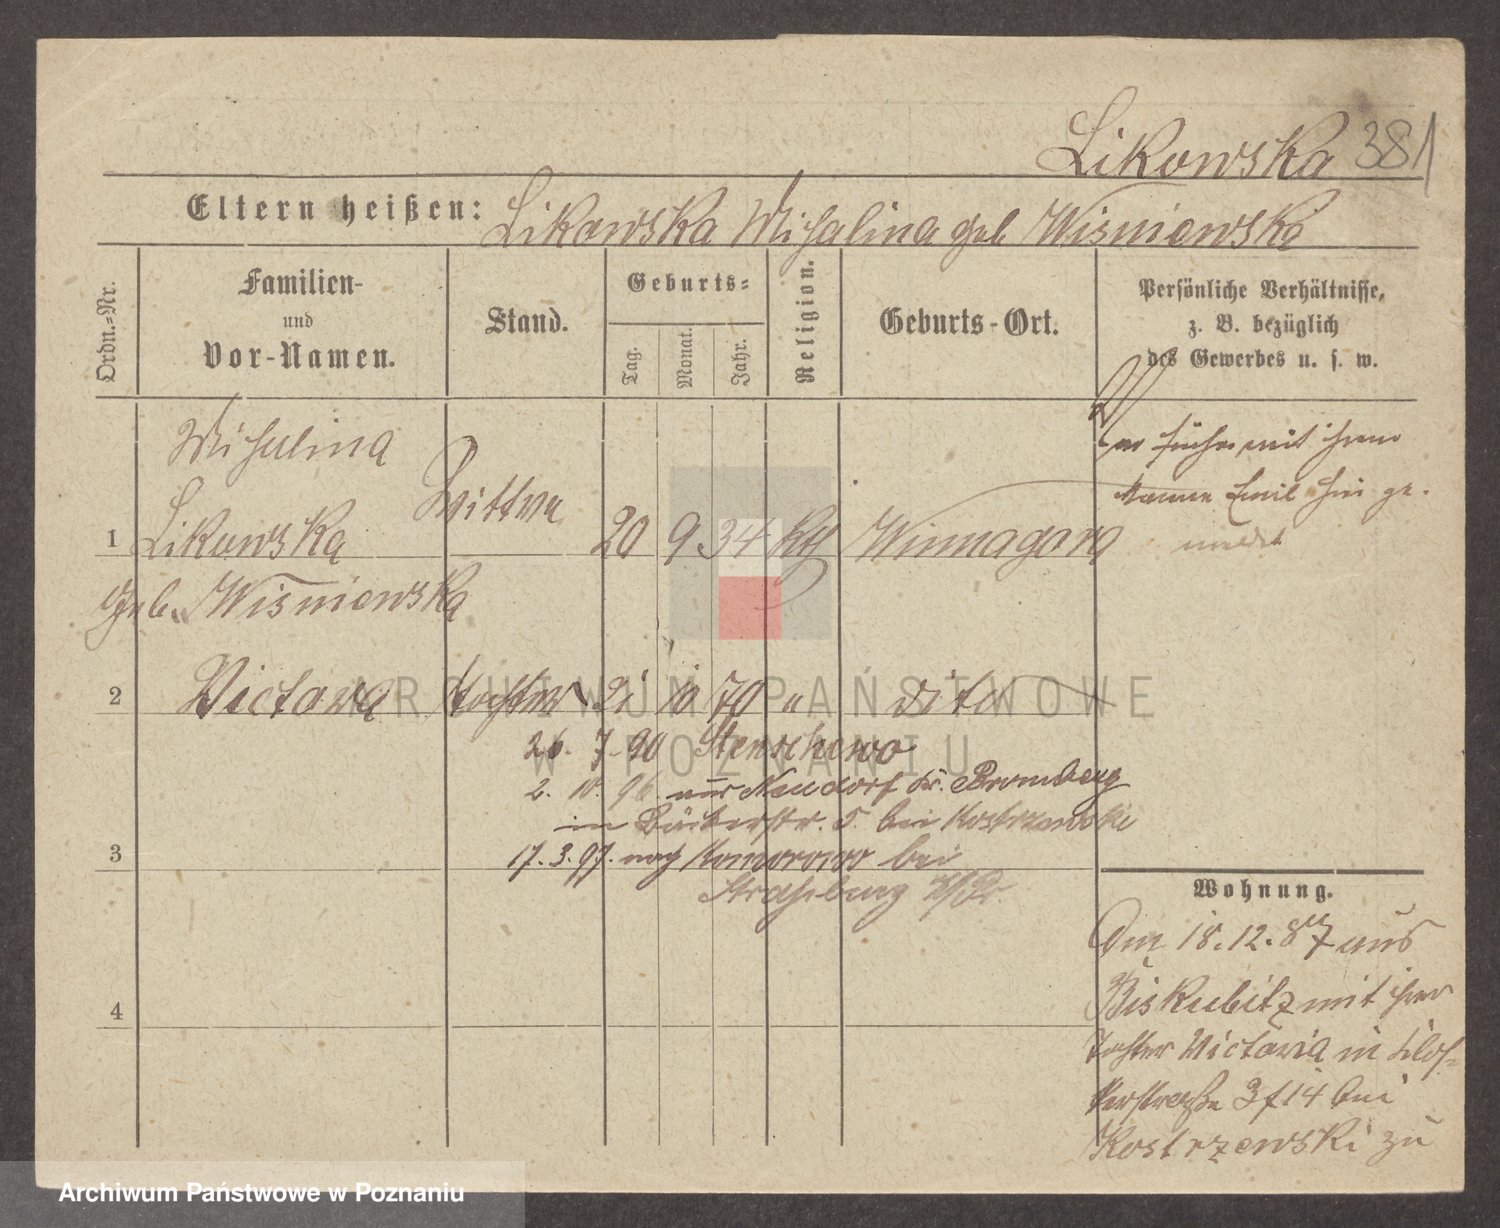 Likowska 381
Eltern heißen: Likowska Mihalina geb Wiśniewska
Ordn.-Nr.
Familien-
und
Vor-Namen.
Stand.
Geburts-
Tag.
Monat.
Jahr.
Religion.
Geburts-Ort.
Persönliche Verhältnisse,
z. B. bezüglich
des Gewerbes u. s. w.
Mihalina
1 Likowska Wittwe 20 9 34 Winnagora
geb. Wiśniewska
War früher mit ihrem
Manne Emil hier ge-
meldet
2 Victoria Tochter 21 10 70 " dito
26. 7. 90 Stenschewo
2. 10. 96 aus Neudorf Kr. Bromberg
in Bäckerstr. 5. bei Kostrzewski
3 17. 3. 97. nach Komorowo bei
Strasburg W/Pr.
4
Wohnung.
Am 18. 12. 87 aus
Biskubitz mit ihrer
Tochter Victoria in Klos-
terstraße 3 f 14 bei
Kostrzewski zu
ARCHIWUM PAŃSTWOWE
W POZNANIU
Archiwum Państwowe w Poznaniu